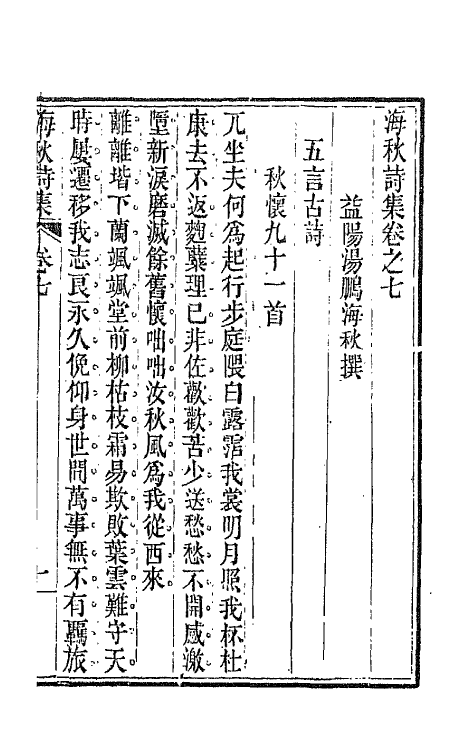 海秋詩集卷之七
益陽湯鵬海秋撰
五言古詩
秋懷九十一首
兀坐夫何爲起行步庭隈白露霑我裳明月照我杯杜
康去不返麴糵理已非佐歡歡苦少送愁愁不開感激
墮新淚磨滅餘舊懷咄咄汝秋風爲我從西來
離離堦下蘭颯颯堂前柳枯枝霜易欺敗葉雲難守天
時屢遷移我志良永久俛仰身世間萬事無不有羈旅
海秋詩集 卷七 一